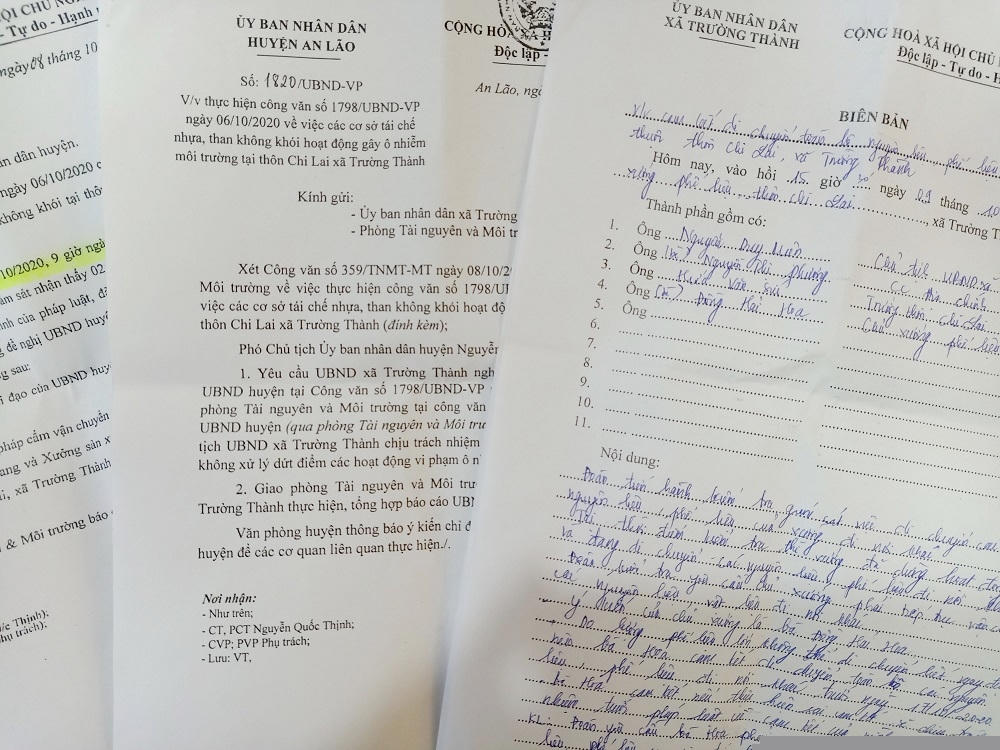 XÃ HỘI CHỦ NG
- Tự do - Hạnh
ngày 08 tháng 10
ân dân huyện.
ngày 06/10/2020 c
không khói tại thô
10/2020, 9 giờ ngà
ám sát nhận thấy 02
ịnh của pháp luật, đã
g đề nghị UBND huyệ
g sau:
ỉ đạo của UBND huyệ
pháp cấm vận chuyển
ang và Xưởng sản x
i, xã Trường Thành
& Môi trường báo
ốc Thịnh);
hụ trách);
ỦY BAN NHÂN DÂN
HUYỆN AN LÃO
Số: 1820/UBND-VP
V/v thực hiện công văn số 1798/UBND-VP
ngày 06/10/2020 về việc các cơ sở tái chế
nhựa, than không khói hoạt động gây ô nhiễm
môi trường tại thôn Chi Lai xã Trường Thành
CỘNG HÒA XÃ H
Độc lập
An Lão, ngà
Kính gửi:
- Ủy ban nhân dân xã Trường
- Phòng Tài nguyên và Môi tr
Xét Công văn số 359/TNMT-MT ngày 08/10/2
Môi trường về việc thực hiện công văn số 1798/U
việc các cơ sở tái chế nhựa, than không khói hoạt độ
thôn Chi Lai xã Trường Thành (đính kèm);
Phó Chủ tịch Ủy ban nhân dân huyện Nguyễ
1. Yêu cầu UBND xã Trường Thành ngh
UBND huyện tại Công văn số 1798/UBND-VP
phòng Tài nguyên và Môi trường tại công văn
UBND huyện (qua phòng Tài nguyên và Môi trư
tịch UBND xã Trường Thành chịu trách nhiệm
không xử lý dứt điểm các hoạt động vi phạm ô n
2. Giao phòng Tài nguyên và Môi trư
Trường Thành thực hiện, tổng hợp báo cáo UBN
Văn phòng huyện thông báo ý kiến chỉ đ
huyện để các cơ quan liên quan thực hiện./.
Nơi nhận:
- Như trên;
- CT, PCT Nguyễn Quốc Thịnh;
- CVP; PVP Phụ trách;
- Lưu: VT,
ỦY BAN NHÂN DÂN
XÃ TRƯỜNG THÀNH
CỘNG HOÀ XÃ HỘI CHỦ
Độc lập - Tự do - Hạn
BIÊN BẢN
V/v cam kết di chuyển toàn bộ nguyên liệu phế liệu
thuộc thôn Chi Lai, xã Trường Thành
Hôm nay, vào hồi 15 giờ 30 ngày 09 tháng 10
xưởng phế liệu thôn Chi Lai, xã Trường T
Thành phần gồm có:
1. Ông Nguyễn Duy
2. Ông (Bà) Nguyễn Thị Phương
3. Ông Văn
4. Ông (Bà) Đồng Hải Hoa
5. Ông
6.
7.
8.
9.
10.
11.
Chủ tịch UBND xã
C.C địa chính
Trưởng thôn Chi Lai
Chủ xưởng phế liệu
Nội dung:
Đoàn tiến hành kiểm tra, giám sát việc di chuyển các
nguyên liệu, phế liệu của xưởng đi nơi khác
Tại thời điểm kiểm tra thì xưởng đã dừng hoạt độ
và đang di chuyển các nguyên liệu, phế liệu đi nơi khác
Đoàn kiểm tra yêu cầu chủ xưởng phải tiếp tục vận c
các nguyên liệu vật liệu đi nơi khác
Ý kiến của chủ xưởng là bà Đồng Hải Hoa
Do lượng phế liệu lớn không thể di chuyển hết ngay
nên bà Hoa cam kết di chuyển toàn bộ các nguyên
liệu, phế liệu đi nơi khác trước ngày 2020
Bà Hoa cam kết nếu thực hiện sai
nhiệm trước pháp luật về cam kết của
KL: Đoàn yêu cầu bà Hoa